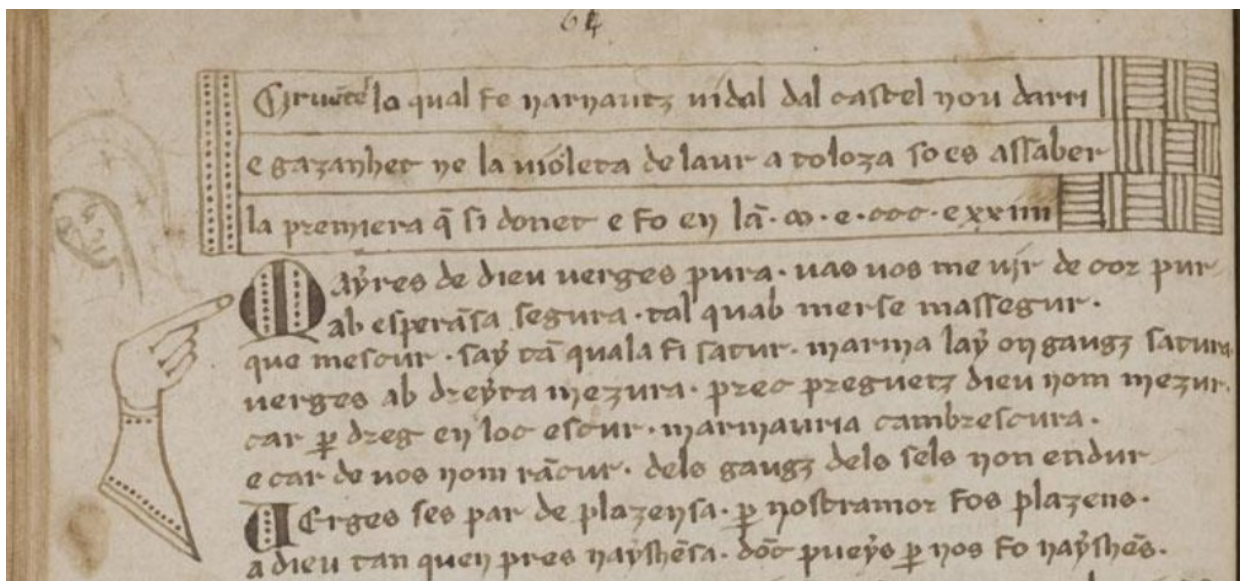 64
Ciruēteˢ lo qual fe narnautz uidal dal castel nou darri
e gazanhet ne la uioleta de laur a toloza so es assaber
la premiera q̄ si donet e fo en lā · m · e · ccc · e xxiiii
Mayres de dieu uerges pura · uas uos me uir de cor pur
ab esperāsa segura · tal quab merse massegur ·
que mescur · say tā quala fi satur · marma lay on gaugz satura
uerges ab dreyta mezura · prec preguetz dieu nom mezur ·
car ꝑ dreg en loc escur · marmauria cambrescura ·
e car de uos nom rācur · dels gaugz dels sels non endur
Uerges ses par de plazensa · ꝑ nostramor fos plazens ·
a dieu tan quen pres nayshēsa · dōc pueys ꝑ nos fo nayshēs ·